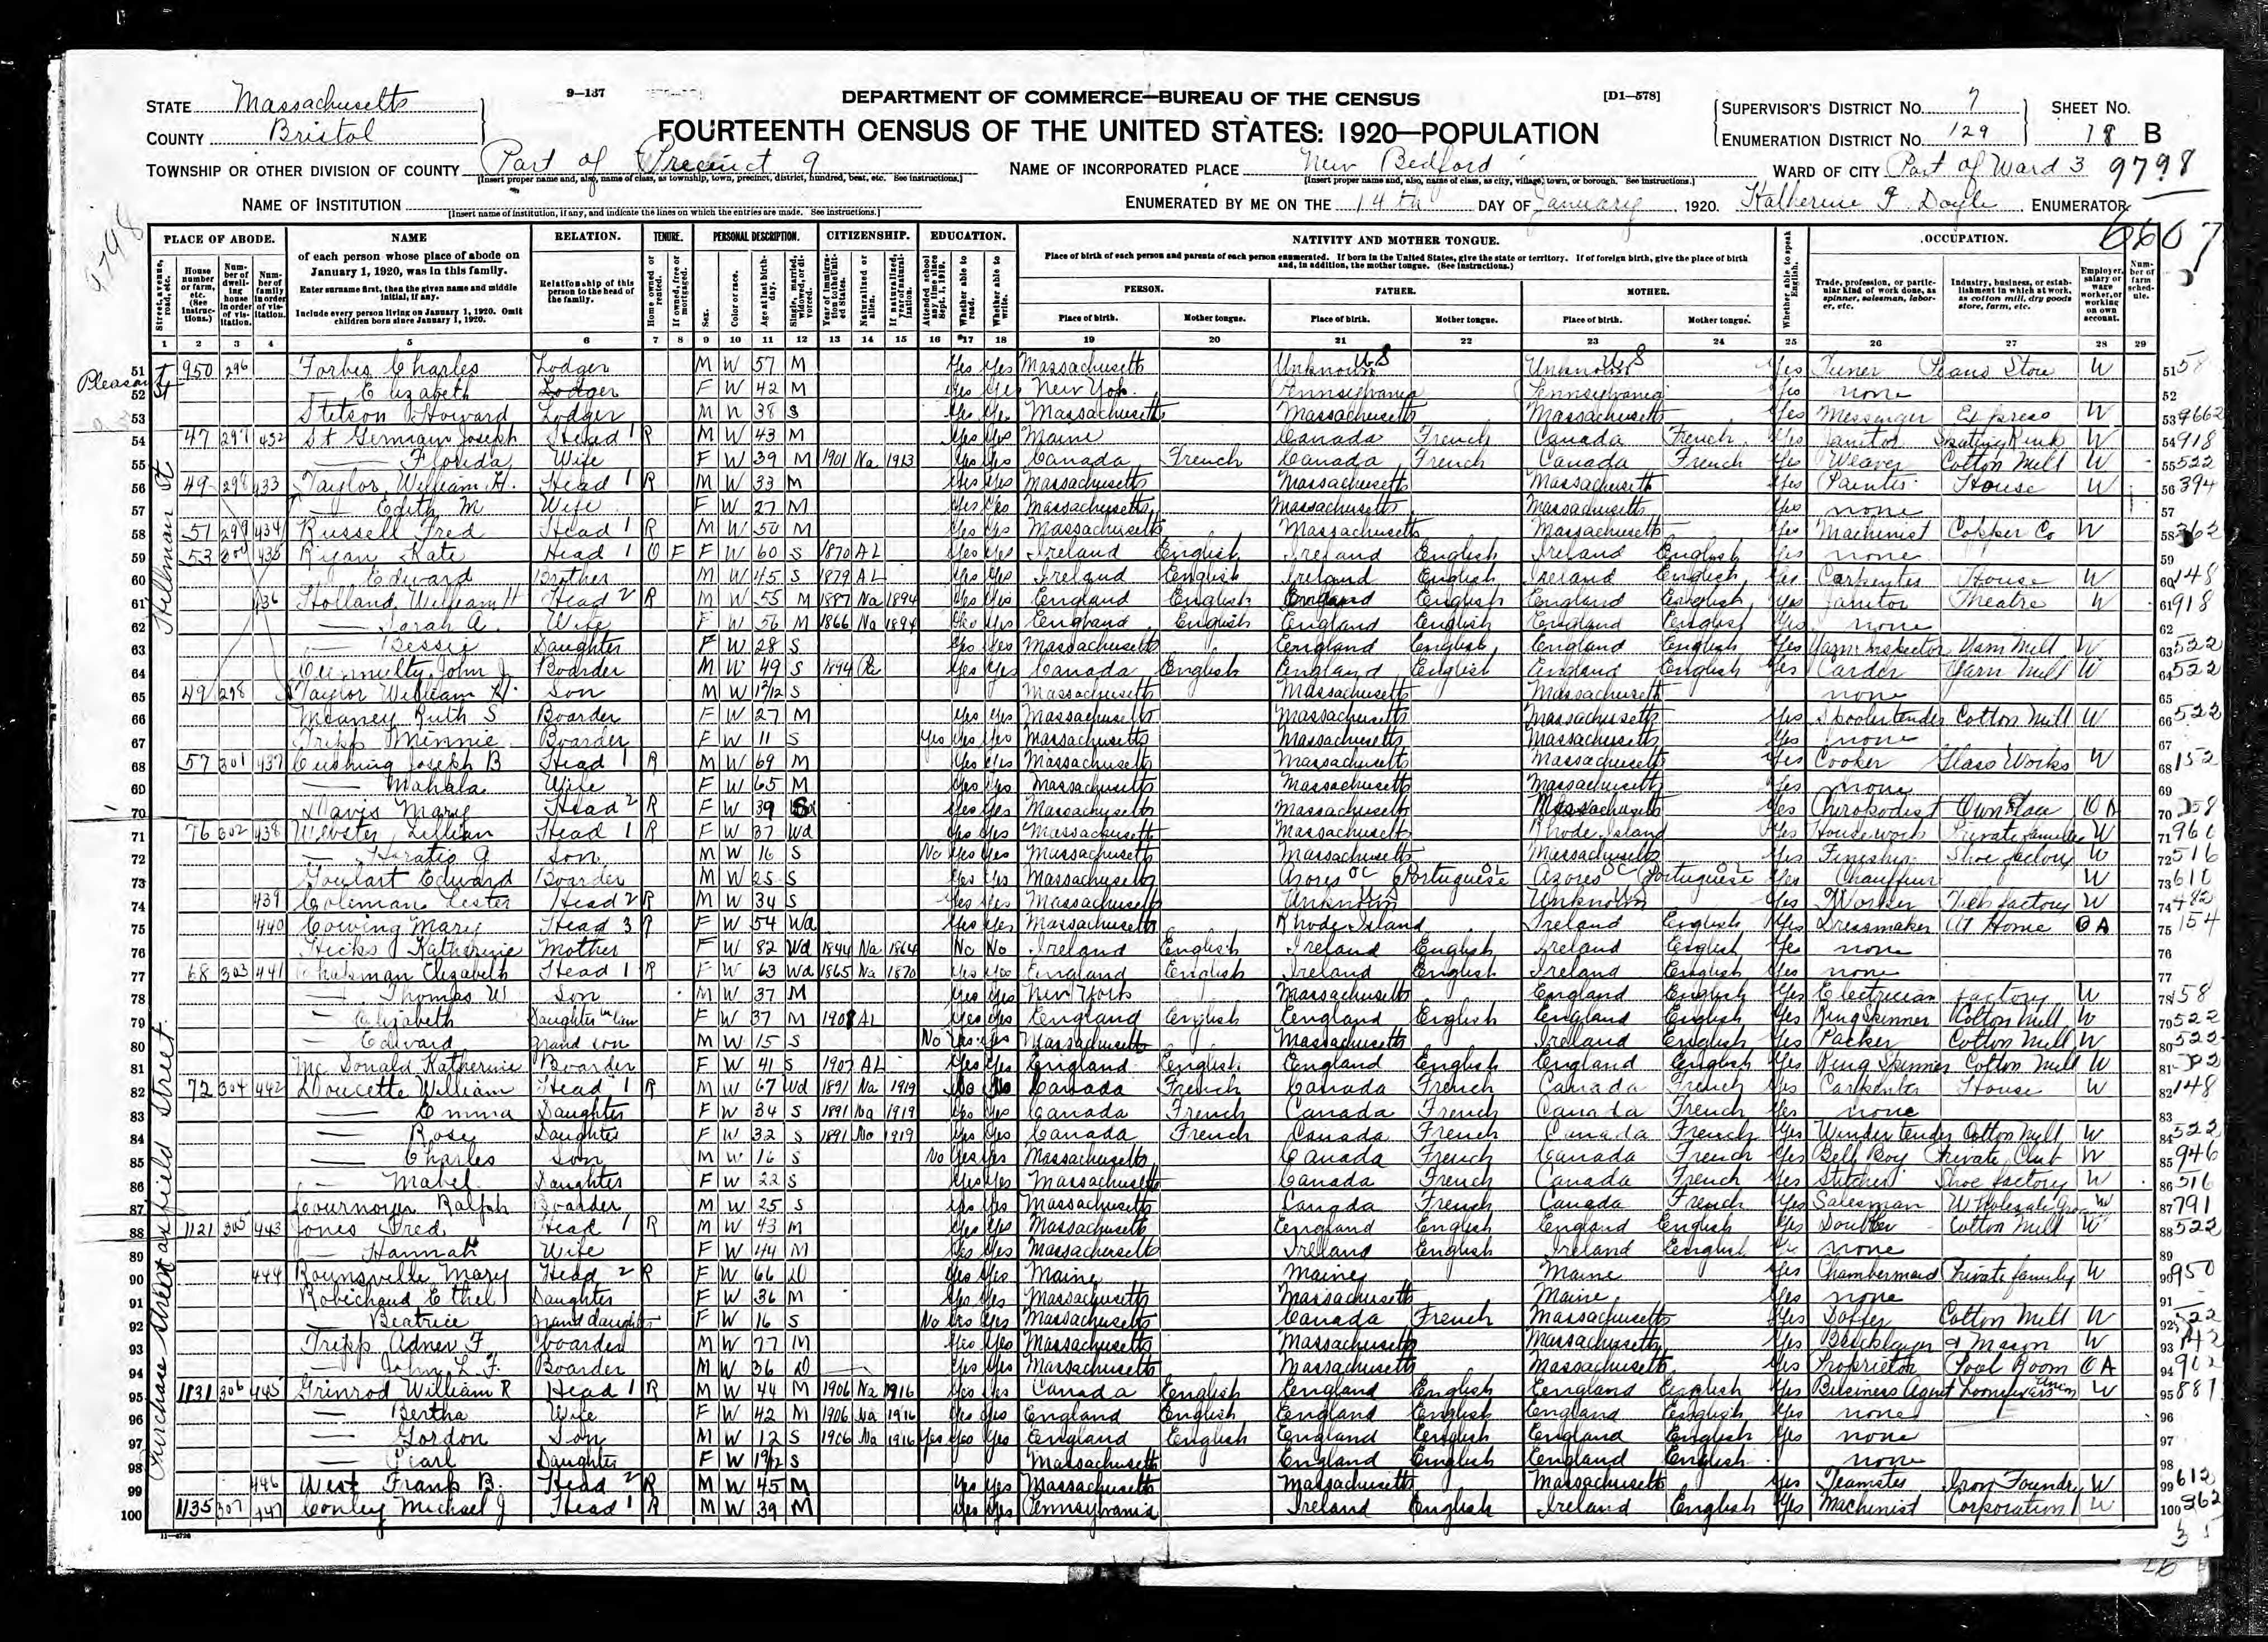 9-137
DEPARTMENT OF COMMERCE—BUREAU OF THE CENSUS
[D1-578]
STATE Massachusetts
COUNTY Bristol
FOURTEENTH CENSUS OF THE UNITED STATES: 1920—POPULATION
SUPERVISOR'S DISTRICT No. 7
ENUMERATION DISTRICT No. 129
SHEET No. 18 B
TOWNSHIP OR OTHER DIVISION OF COUNTY Part of Precinct 9
[Insert proper name and, also, name of class, as township, town, precinct, district, hundred, beat, etc. See instructions.]
NAME OF INCORPORATED PLACE New Bedford
[Insert proper name and, also, name of class, as city, village, town, or borough. See instructions.]
WARD OF CITY Part of Ward 3
9798
NAME OF INSTITUTION
[Insert name of institution, if any, and indicate the lines on which the entries are made. See instructions.]
ENUMERATED BY ME ON THE 14th DAY OF January, 1920. Katherine F. Doyle ENUMERATOR
6607
9798
PLACE OF ABODE. NAME RELATION. TENURE. PERSONAL DESCRIPTION. CITIZENSHIP. EDUCATION. NATIVITY AND MOTHER TONGUE. OCCUPATION.
of each person whose place of abode on January 1, 1920, was in this family.
Enter surname first, then the given name and middle initial, if any.
Include every person living on January 1, 1920. Omit children born since January 1, 1920.
Relationship of this person to the head of the family.
Place of birth of each person and parents of each person enumerated. If born in the United States, give the state or territory. If of foreign birth, give the place of birth and, in addition, the mother tongue. (See instructions.)
PERSON. FATHER. MOTHER.
Place of birth. Mother tongue. Place of birth. Mother tongue. Place of birth. Mother tongue.
1 2 3 4 5 6 7 8 9 10 11 12 13 14 15 16 17 18 19 20 21 22 23 24 25 26 27 28 29
Pleasant St
Hillman St
Purchase Street
51 950 296 Forbes Charles Lodger M W 57 M Yes Yes Massachusetts Unknown US Unknown US Yes Tuner Piano Store W 51 58
52 Elizabeth Lodger F W 42 M Yes Yes New York Pennsylvania Pennsylvania Yes none 52
53 Stetson Howard Lodger M W 38 S Yes Yes Massachusetts Massachusetts Massachusetts Yes Messenger Express W 53 9662
54 47 297 432 St Germain Joseph Head 1 R M W 43 M Yes Yes Maine Canada French Canada French Yes Janitor Skating Rink W 54 918
55 — Florida Wife F W 39 M 1901 Na 1913 Yes Yes Canada French Canada French Canada French Yes Weaver Cotton Mill W 55 522
56 49 298 433 Taylor William H. Head 1 R M W 33 M Yes Yes Massachusetts Massachusetts Massachusetts Yes Painter House W 56 394
57 — Edith M Wife F W 27 M Yes Yes Massachusetts Massachusetts Massachusetts Yes none 57
58 51 299 434 Russell Fred Head 1 R M W 50 M Yes Yes Massachusetts Massachusetts Massachusetts Yes Machinist Copper Co W 58 362
59 53 300 435 Ryan Kate Head 1 O F F W 60 S 1870 AL Yes Yes Ireland English Ireland English Ireland English Yes none 59
60 Edward Brother M W 45 S 1879 AL Yes Yes Ireland English Ireland English Ireland English Yes Carpenter House W 60 148
61 436 Holland William H Head 2 R M W 55 M 1887 Na 1894 Yes Yes England English England English England English Yes Janitor Theatre W 61 918
62 — Sarah A. Wife F W 56 M 1866 Na 1894 Yes England English England English England English Yes none 62
63 — Bessie Daughter F W 28 S Yes Yes Massachusetts England English England English Yes Yarn Inspector Yarn Mill W 63 522
64 John J Boarder M W 49 S 1894 Yes Yes Canada English England English England English Yes Carder Yarn Mill W 64 522
65 49 298 Taylor William H. Son M W S Massachusetts Massachusetts Massachusetts none 65
66 Ruth S Boarder F W 27 M Yes Yes Massachusetts Massachusetts Massachusetts Yes Spooler tender Cotton Mill W 66 522
67 Tripp Minnie Boarder F W 11 S Yes Yes Yes Massachusetts Massachusetts Massachusetts Yes none 67
68 57 301 437 Cushing Joseph B Head 1 R M W 69 M Yes Yes Massachusetts Massachusetts Massachusetts Yes Cooker Glass Works W 68 152
69 — Mahala Wife F W 65 M Yes Yes Massachusetts Massachusetts Massachusetts Yes none 69
70 Davis Mary Head 2 R F W 39 Yes Yes Massachusetts Massachusetts Massachusetts Yes Chiropodist Own Place OA 70
71 76 302 438 Webster Lillian Head 1 R F W 37 Wd Yes Yes Massachusetts Massachusetts Rhode Island Yes Housework Private families W 71
72 — Horatio G Son M W 16 S No Yes Yes Massachusetts Massachusetts Massachusetts Yes Finisher Shoe factory W 72 516
73 Goulart Edward Boarder M W 25 S Yes Yes Massachusetts Azores Portuguese Azores Portuguese Yes Chauffeur W 73
74 439 Coleman Lester Head 2 R M W 34 S Yes Yes Massachusetts Unknown Unknown Yes Worker factory W 74 482
75 440 Cowing Mary Head 3 R F W 54 Wd Yes Yes Massachusetts Rhode Island Ireland English Yes Dressmaker At Home OA 75 154
76 Hicks Katherine Mother F W 82 Wd 1844 Na 1864 No No Ireland English Ireland English Ireland English Yes none 76
77 68 303 441 Chapman Elizabeth Head 1 R F W 63 Wd 1865 Na 1870 Yes Yes England English Ireland English Ireland English Yes none 77
78 — Thomas W Son M W 37 M Yes Yes New York Massachusetts England English Yes Electrician factory W 78 158
79 — Elizabeth Daughter in law F W 37 M 1908 AL Yes Yes England English England English England English Yes Ring Spinner Cotton Mill W 79 522
80 — Edward grand son M W 15 S No Yes Yes Massachusetts Massachusetts Ireland English Yes Packer Cotton Mill W 80 522
81 Mc Donald Katherine Boarder F W 41 S 1907 AL Yes Yes England English England English England English Yes Ring Spinner Cotton Mill W 81
82 72 304 442 Doucette William Head 1 R M W 67 Wd 1891 Na 1919 No No Canada French Canada French Canada French Yes Carpenter House W 82 148
83 — Emma Daughter F W 34 S 1891 Na 1919 Yes Yes Canada French Canada French Canada French Yes none 83
84 — Rose Daughter F W 32 S 1891 Na 1919 Yes Yes Canada French Canada French Canada French Yes Winder tender Cotton Mill W 84 522
85 — Charles Son M W 16 S No Yes Yes Massachusetts Canada French Canada French Yes Bell Boy Private Club W 85 946
86 — Mabel Daughter F W 22 S Yes Yes Massachusetts Canada French Canada French Yes Stitcher Shoe factory W 86 516
87 Cournoyer Ralph Boarder M W 25 S Yes Yes Massachusetts Canada French Canada French Yes Salesman Wholesale W 87 791
88 1121 305 443 Jones Fred Head 1 R M W 43 M Yes Yes Massachusetts England English England English Yes Doubler Cotton Mill W 88 522
89 — Hannah Wife F W 44 M Yes Yes Massachusetts Ireland English Ireland English Yes none 89
90 444 Rounsville Mary Head 2 R F W 66 D Yes Yes Maine Maine Maine Yes Chambermaid Private family W 90 950
91 Robichaud Ethel Daughter F W 36 M Yes Yes Massachusetts Massachusetts Maine Yes none 91
92 — Beatrice grand daughter F W 16 S No Yes Yes Massachusetts Canada French Massachusetts Yes Doffer Cotton Mill W 92 522
93 Tripp Adner F boarder M W 77 M Yes Yes Massachusetts Massachusetts Massachusetts Yes Bricklayer & Mason W 93 142
94 — John L. F. Boarder M W 36 D Yes Yes Massachusetts Massachusetts Massachusetts Yes Proprietor Pool Room OA 94
95 1131 306 445 Grinrod William R Head 1 R M W 44 M 1906 Na 1916 Yes Yes Canada English England English England English Yes Business Agent Loomfixers Union W 95 881
96 — Bertha Wife F W 42 M 1906 Na 1916 Yes Yes England English England English England English Yes none 96
97 — Gordon Son M W 12 S 1906 Na 1916 Yes Yes Yes England English England English England English Yes none 97
98 — Pearl Daughter F W S Massachusetts England English England English none 98
99 446 West Frank B. Head 2 R M W 45 M Yes Yes Massachusetts Massachusetts Massachusetts Yes Teamster Iron Foundry W 99 612
100 1135 307 447 Conley Michael J Head 1 R M W 39 M Yes Yes Pennsylvania Ireland English Ireland English Yes Machinist Corporation W 100 362